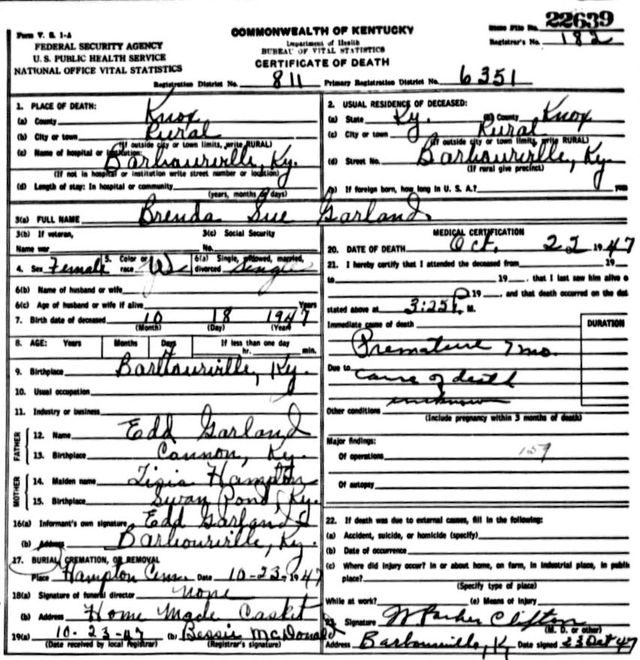 Form V. S. 1-A
FEDERAL SECURITY AGENCY
U. S. PUBLIC HEALTH SERVICE
NATIONAL OFFICE VITAL STATISTICS
COMMONWEALTH OF KENTUCKY
Department of Health
BUREAU OF VITAL STATISTICS
CERTIFICATE OF DEATH
State File No. 22639
Registrar's No. 182
Registration District No. 811 Primary Registration District No. 6351
1. PLACE OF DEATH:
(a) County Knox
(b) City or town Rural
(If outside city or town limits, write RURAL)
(c) Name of hospital or institution:
Barbourville, Ky.
(If not in hospital or institution write street number or location)
(d) Length of stay: In hospital or community
(years, months or days)
2. USUAL RESIDENCE OF DECEASED:
(a) State Ky. (b) County Knox
(c) City or town Rural
(If outside city or town limits, write RURAL)
(d) Street No. Barbourville, Ky.
(If rural give precinct)
If foreign born, how long in U. S. A.?
3(a) FULL NAME Brenda Sue Garland
3(b) If veteran, Name war
3(c) Social Security No.
4. Sex Female 5. Color or race W 6(a) Single, widowed, married, divorced Single
6(b) Name of husband or wife
6(c) Age of husband or wife if alive Years
7. Birth date of deceased 10 18 1947
(Month) (Day) (Year)
8. AGE: Years Months Days If less than one day
hr. min.
9. Birthplace Barbourville, Ky.
10. Usual occupation
11. Industry or business
FATHER
12. Name Edd Garland
13. Birthplace Cannon, Ky.
MOTHER
14. Maiden name Hampton
15. Birthplace Swan Pond, Ky.
16(a) Informant's own signature Edd Garland
(b) Address Barbourville, Ky.
17. BURIAL, CREMATION, OR REMOVAL
Place Hampton Cem. Date 10-23-1947
18(a) Signature of funeral director none
(b) Address Home Made Casket
19(a) 10-23-47 (b) Bessie McDonald
(Date received by local registrar) (Registrar's signature)
MEDICAL CERTIFICATION
20. DATE OF DEATH Oct. 22 1947
21. I hereby certify that I attended the deceased from 19
to 19 , that I last saw him alive o
19 , and that death occurred on the dat
stated above at 3:25 P. M.
DURATION
Immediate cause of death
Premature 7 mo.
Due to cause of death
unknown
Other conditions
(Include pregnancy within 3 months of death)
Major findings:
Of operations 159
Of autopsy
22. If death was due to external causes, fill in the following:
(a) Accident, suicide, or homicide (specify)
(b) Date of occurrence
(c) Where did injury occur? In or about home, on farm, in industrial place, in public
place?
(Specify type of place)
While at work? (e) Means of Injury
23. Signature W Parker Clifton
(M. D. or other)
Address Barbourville, Ky Date signed 23 Oct 47